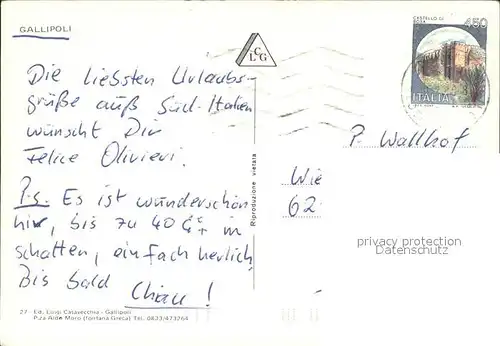 GALLIPOLI
LCG
CASTELLO DI
450
ITALIA
Die liebsten Urlaubs-
grüße auß Süd-Italien
wünscht Dir
Felice Olivieri.
P.s. Es ist wunderschön
hir, bis zu 40 C° in
schatten, einfach herlich
Bis bald Chiau!
P. Wallhof
Wie
62
Riproduzione vietata
privacy protection
Datenschutz
27 - Ed. Luigi Casavecchia - Gallipoli
P.za Aldo Moro (fontana Greca) Tel. 0833/473264